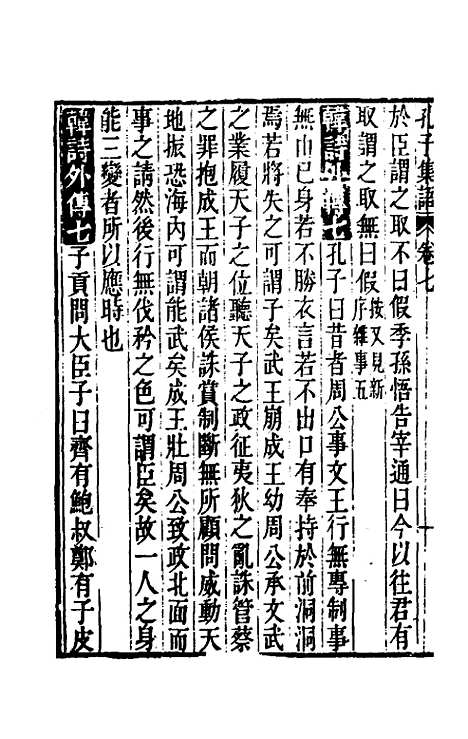 孔子集語 卷七 一
於臣謂之取不曰假季孫悟告宰通曰今以往君有
取謂之取無曰假按又見新序雜事五
韓詩外傳七孔子曰昔者周公事文王行無專制事
無由己身若不勝衣言若不出口有奉持於前洞洞
焉若將失之可謂子矣武王崩成王幼周公承文武
之業履天子之位聽天子之政征夷狄之亂誅管蔡
之罪抱成王而朝諸侯誅賞制斷無所顧問威動天
地振恐海內可謂能武矣成王壯周公致政北面而
事之請然後行無伐矜之色可謂臣矣故一人之身
能三變者所以應時也
韓詩外傳七子貢問大臣子曰齊有鮑叔鄭有子皮